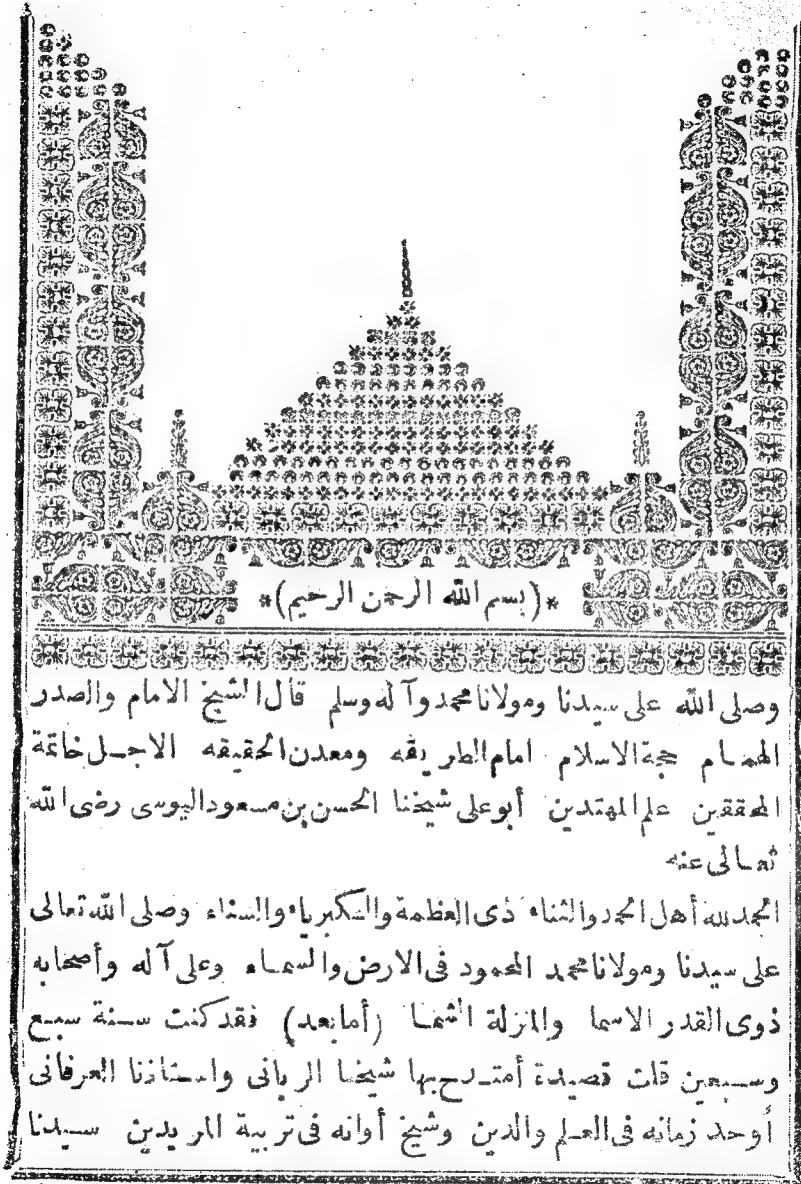 *(بسم الله الرحمن الرحيم)*
وصلى الله على سيدنا ومولانا محمد وآله وسلم قال الشيخ الامام والصدر
الهمام حجة الاسلام امام الطريقه ومعدن الحقيقه الاجل خاتمة
المحققين علم المهتدين أبو على شيخنا الحسن بن مسعود اليوسى رضى الله
تعالى عنه
الحمد لله أهل الحمد والثناء ذى العظمة والكبرياء والسناء وصلى الله تعالى
على سيدنا ومولانا محمد المحمود فى الارض والسماء وعلى آله وأصحابه
ذوى القدر الاسما والمنزلة الشما (أما بعد) فقد كنت سنة سبع
وسبعين قلت قصيدة أمتدح بها شيخنا الربانى واستاذنا العرفانى
أوحد زمانه فى العلم والدين وشيخ أوانه فى تربية المريدين سيدنا